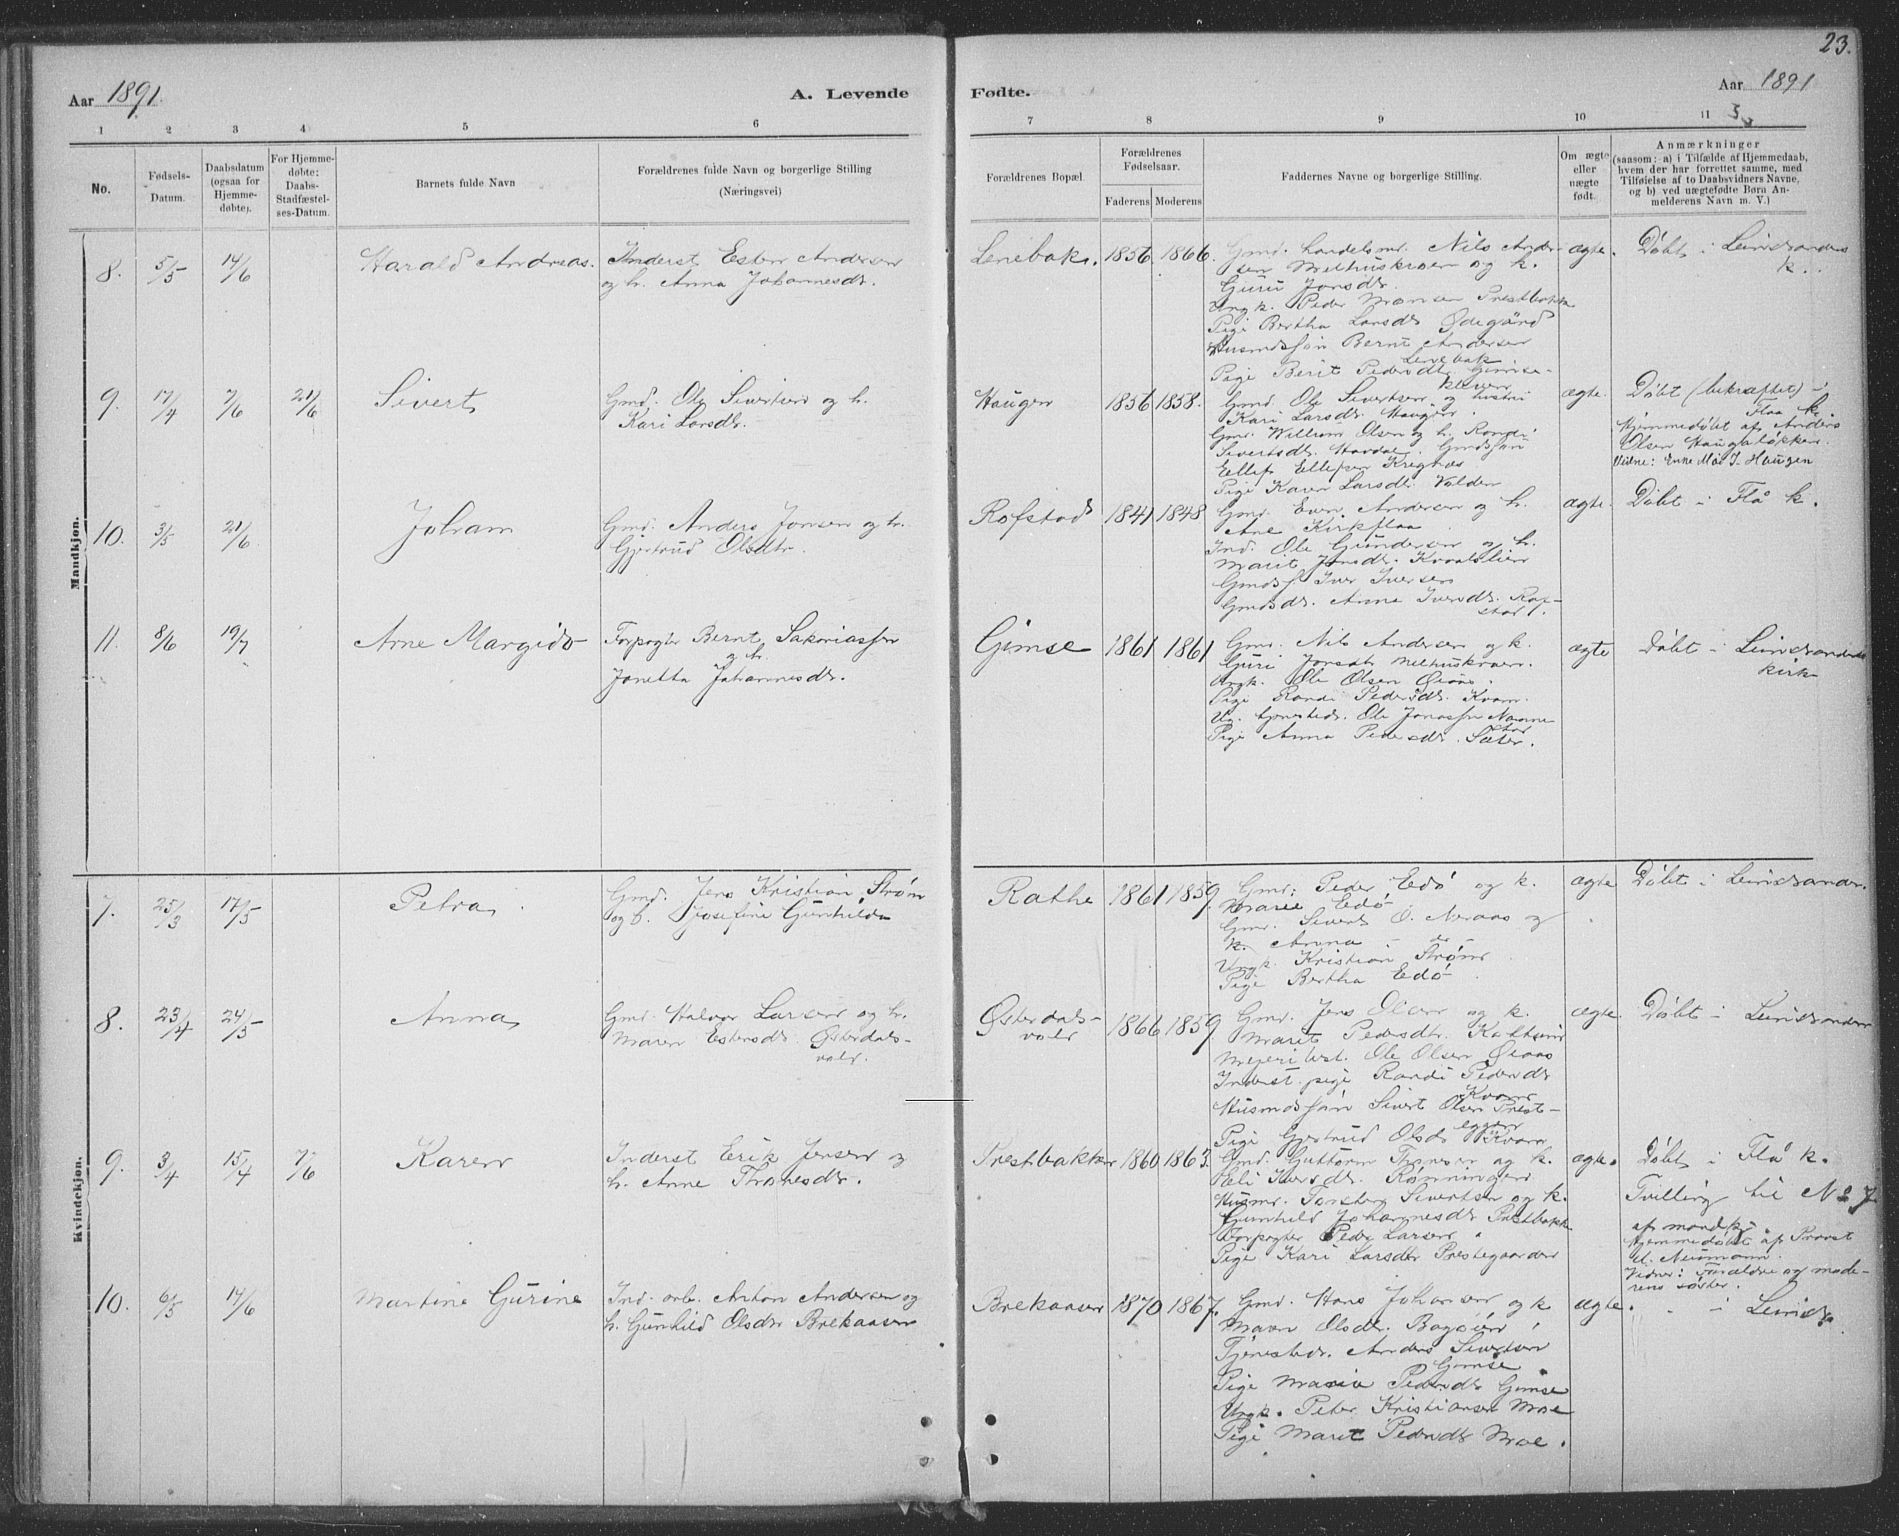 23.
Aar 1891.
A. Levende
Fødte.
Aar 1891
1 2 3 4 5 6 7 8 9 10 11
No.
Fødsels-Datum.
Daabsdatum (ogsaa for Hjemme-døbte).
For Hjemme-døbte: Daabs-Stadfæstel-ses-Datum.
Barnets fulde Navn
Forældrenes fulde Navn og borgerlige Stilling
(Næringsvei)
Forældrenes Bopæl.
Forældrenes Fødselsaar.
Faderens Moderens
Faddernes Navne og borgerlige Stilling.
Om ægte eller uægte født.
Anmærkninger
(saasom: a) i Tilfælde af Hjemmedaab,
hvem der har forrettet samme, med
Tilføielse af to Daabsvidners Navne,
og b) ved uægtefødte Børn An-
melderens Navn m. V.)
Mandkjøn.
8. 5/5 14/6 Harald Andreas.
Inderst Esten Andersen
og h. Anna Johannesdr.
Lenebak. 1856 1866.
Gmd. handelsmd. Nils Ander-
sen Melhuskroen og k.
Guru Jonsdr.
Ungk. Peder Monsen Prestbakk
Pige Bertha Larsdr Ødegård
Husmdsøn Bernt Andersen
Lenebak
Pige Berit Pedersdr. Gimse-
kleven
ægte.
Døbt i Leinstrandens
k.
9. 17/4 7/6 21/6 Sivert
Gmd. Ole Sivertsen og h.
Kari Larsdr.
Haugen 1856 1858.
Gmd. Ole Sivertsen og hustru
Kari Larsdr. Haugen.
Gmd. Willum Olsen og h. Randi
Sivertsdr. Havdal. Gmdsøn
Ellef Ellefsen Kregnes
Pige Karen Larsdr. Volden
ægte.
Døbt (bekræftet) i
Flaa k.
Hjemmedøbt af Anders
Olsen Haugaløkken.
Vidne: Enne Mar. J. Haugen
10. 3/5 21/6 Johan
Gmd. Anders Jonsen og h.
Gjertrud Olsdtr.
Rofstad 1841 1848
Gmd. Even Andersen og h.
Ane Kirkflaa
Ind. Ole Gundersen og h.
Marit Jonsdr. Kvaalslien
Gmds. Iver Iversen
Gmdsdr. Anna Iversdr. Rof-
stad.
ægte.
Døbt i Flå k.
11. 8/6 19/7 Arne Margido
Forpagter Bernt Sakariassen
og h.
Jonetta Johannesdr.
Gimse 1861 1861
Gmd. Nils Andersen og k.
Guri Jonsdtr Melhuskroen.
Ungk. Ole Olsen Øiaas.
Pige Randi Pedersdr. Kvam
Ug. tjenestedr. Ole Jonassen Navne
stad
Pige Anna Pedersdr. Sæter.
ægte
Døbt i Leinstrandens
kirk
Kvindekjøn.
7. 25/3 17/5 Petra
Gmd. Jens Kristian Strøm
og h. Josefine Gunhilda
Rathe 1861 1859.
Gmd: Peder Edø og k.
Marie Edø
Gmd. Sivert O. Neraas og
k. Anna do
Ungk. Kristian Strøm
Pige Bertha Edø
ægte
Døbt i Leinstranden.
8. 23/4 24/5 Anna
Gmd. Halvor Larsen og h.
Maren Estensdr. Østerdals-
voll.
Østerdals-
voll 1866 1859.
Gmd. Jens Olsen og k.
Marit Pedersdtr. Kaltsund
Mejeribest. Ole Olsen Øiaas
Inderst pige Randi Pedersdr
Kvam
Husmdssøn Sivert Olsen Prest-
eggen
Pige Gjertrud Olsdr Kvam
ægte.
Døbt i Leinstranden
9. 3/4 15/4 7/6 Karen
Inderst Erik Jensen og
h. Anne Thoresdr.
Prestbakken 1860 1863.
Gmd. Guttorm Thoresen og k.
Eli Iversdr. Rønningen
Husmd. Torsten Sivertsen og k.
Gunhild Johannesdr Prestbakk
Forpagter Peder Larsen
Pige Kari Larsdr Prestegaarden
ægte.
Døbt i Flå k.
Tvilling til No 7
af mandkj.
Hjemmedøbt af Provst
Neumann.
Vidner: Forældre og mode-
rens søster.
10. 6/5 14/6 Martine Gurine
Ind. arb. Anton Andersen og
h. Gunhild Olsdr Brekaasen
Brekaasen 1870 1867.
Gmd. Hans Johansen og k
Maren Olsdr. Bagøien
Tjenestedr. Anders Sivertsen
Gimse
Pige Marie Pedersdr Gimse
Ungk. Peter Kristiansen Moe
Pige Marit Pedersdr Moe.
ægte.
" i Leinstr.